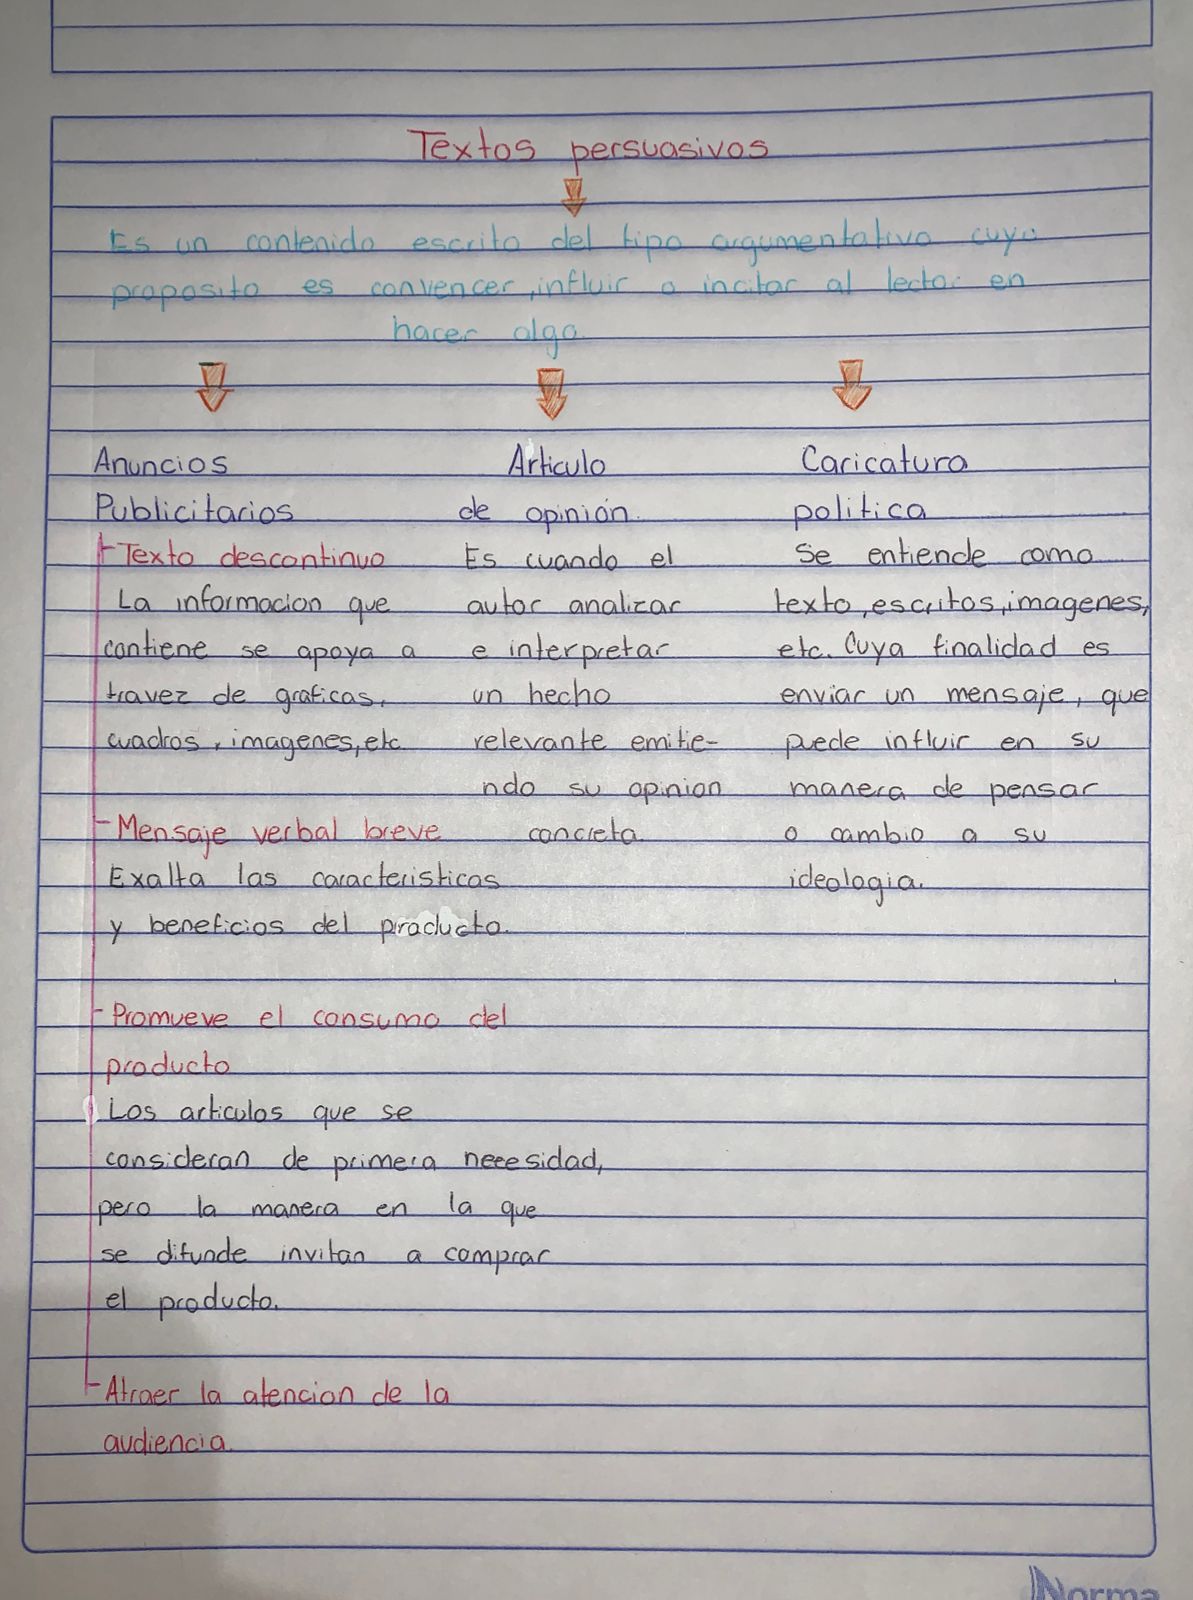 Textos persuasivos
Es un contenido escrito del tipo argumentativo cuyo
proposito es convencer, influir o incitar al lector en
hacer algo.
Anuncios
Publicitarios
- Texto descontinuo
La informacion que
contiene se apoya a
travez de graficas,
cuadros, imagenes, etc
- Mensaje verbal breve
Exalta las caracteristicas
y beneficios del producto.
- Promueve el consumo del
producto
Los articulos que se
consideran de primera necesidad,
pero la manera en la que
se difunde invitan a comprar
el producto.
- Atraer la atencion de la
audiencia.
Articulo
de opinión.
Es cuando el
autor analizar
e interpretar
un hecho
relevante emitie-
ndo su opinion
concreta.
Caricatura
politica
Se entiende como
texto, escritos, imagenes,
etc. Cuya finalidad es
enviar un mensaje, que
puede influir en su
manera de pensar
o cambio a su
ideologia.
Norma